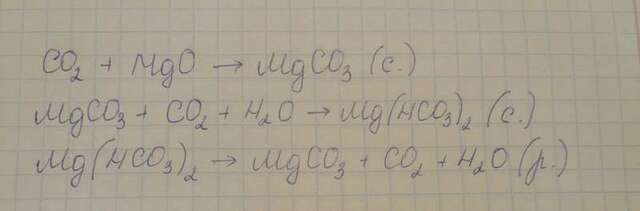 CO₂ + MgO → MgCO₃ (с.)
MgCO₃ + CO₂ + H₂O → Mg(HCO₃)₂ (с.)
Mg(HCO₃)₂ → MgCO₃ + CO₂ + H₂O (р.)